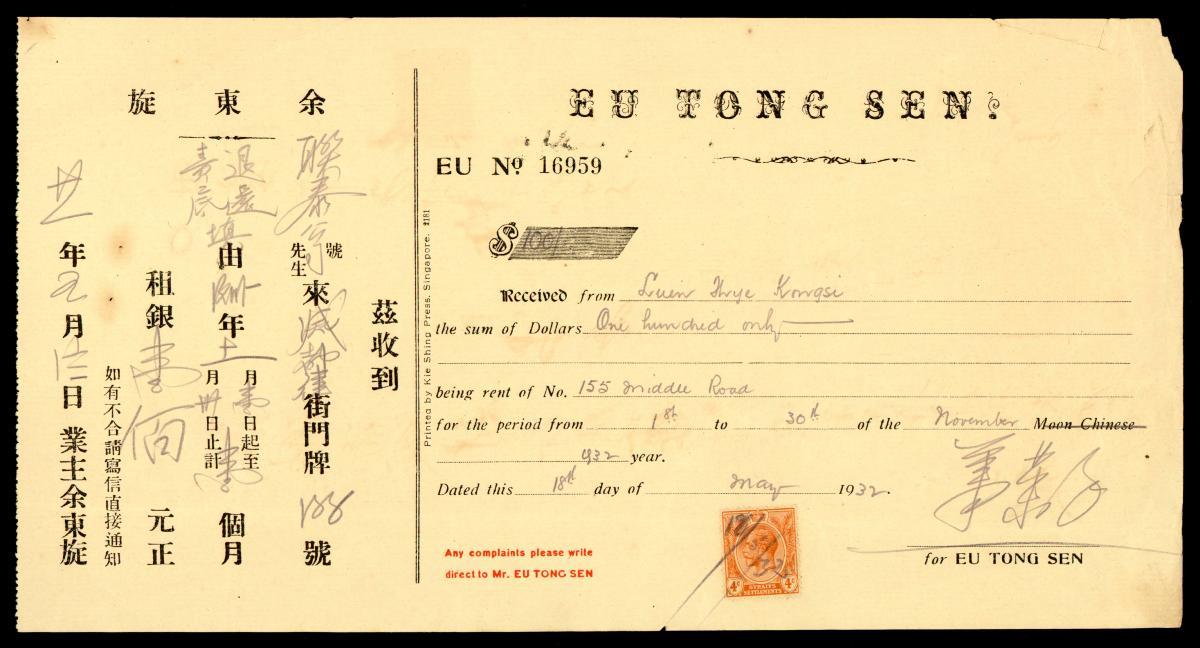 余東旋
茲收到
號
先生
來
街門牌
號
退還
由
年
月
日起至
月
日止計
個月
租銀壹佰元正
如有不合請寫信直接通知
年
月
日業主余東旋
EU TONG SEN.
EU No 16959
$ 100/-
Received from Luen Thye Kongsi
the sum of Dollars One hundred only
being rent of No. 155 Middle Road
for the period from 1st to 30th of the November Moon Chinese
1932 year.
Dated this 18th day of May 1932.
for EU TONG SEN
Any complaints please write
direct to Mr. EU TONG SEN
STRAITS
SETTLEMENTS
4c 4c
Printed by Kie Shing Press, Singapore. 1181